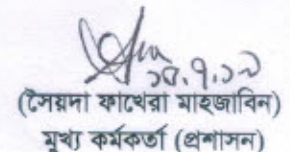 ১৫.৭.১৯
(সৈয়দা ফাখেরা মাহজাবিন)
মুখ্য কর্মকর্তা (প্রশাসন)